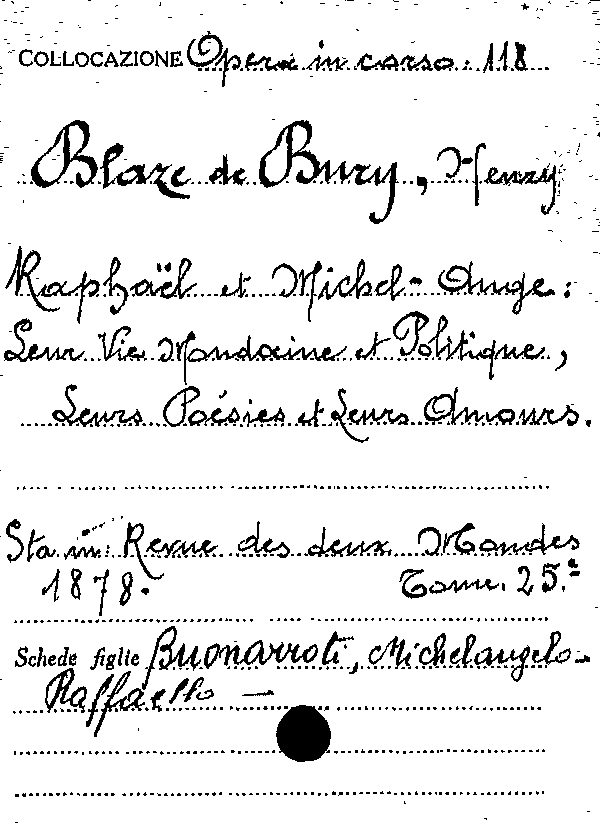 COLLOCAZIONE Opera in corso: 118
Blaze de Bury, Henry
Raphaël et Michel-Ange:
Leur Vie Mondaine et Politique,
Leurs Poésies et Leurs Amours.
Sta in: Revue des deux Mondes
1878. Tome. 25.º
Schede figlie Buonarroti, Michelangelo-
Raffaello —